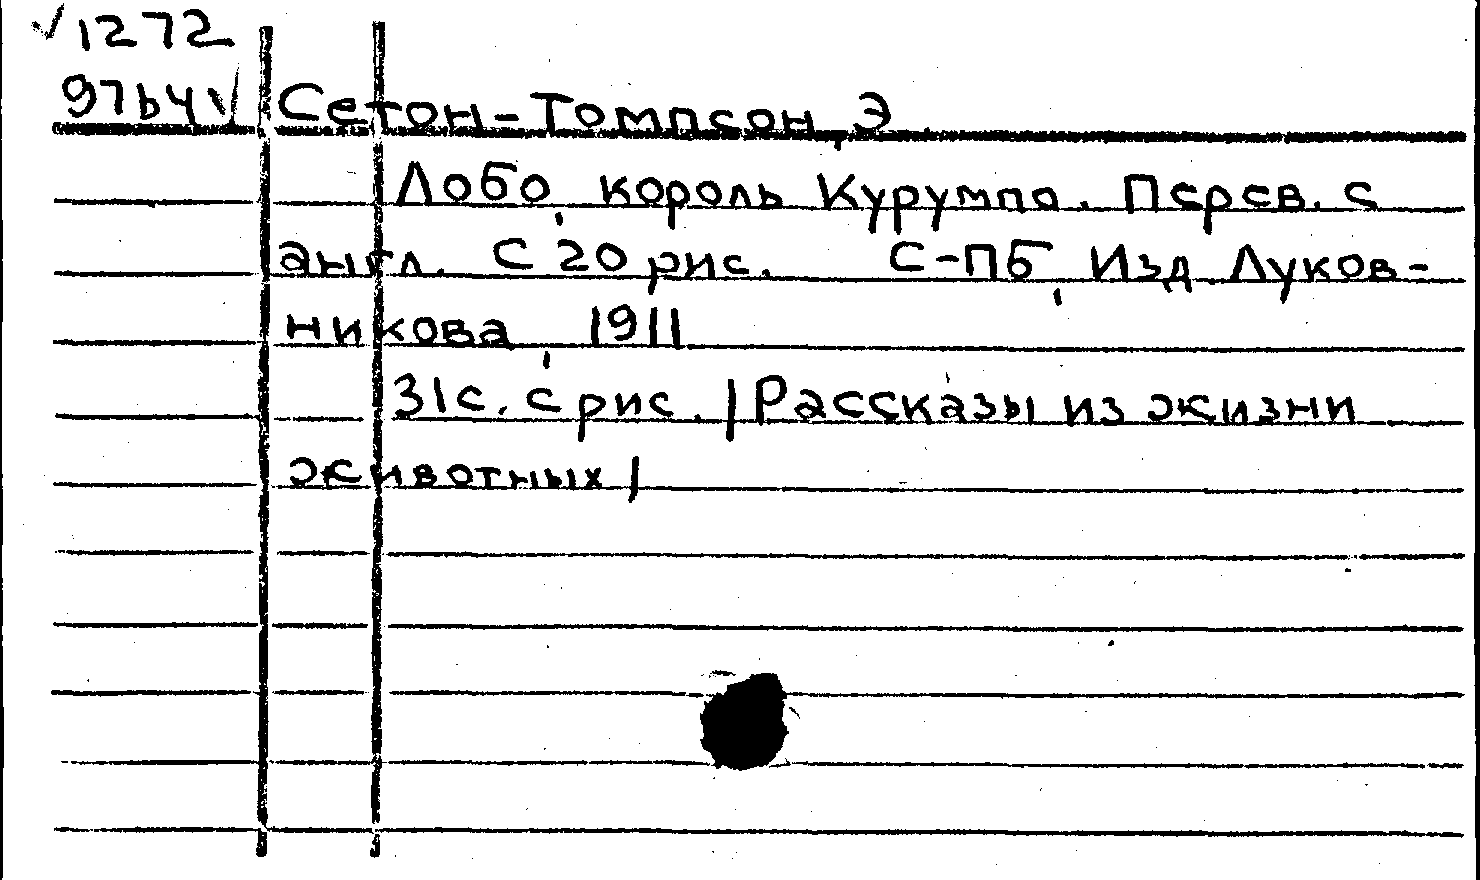 √1272
97b4√ Сетон-Томпсон, Э
Лобо, король Курумпо. Перев. с
англ. С 20 рис. С-ПБ, Изд Луков-
никова, 1911
31с. с рис. /Рассказы из жизни
животных/